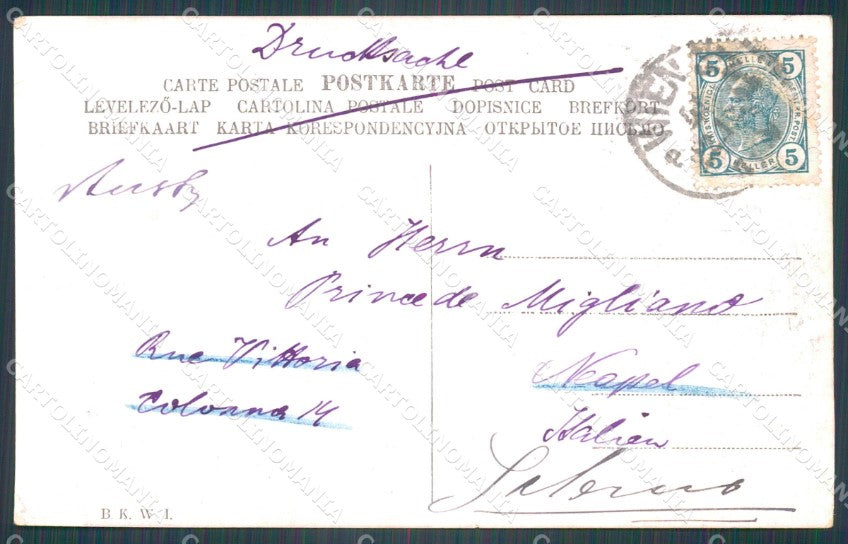 Drucksache
CARTE POSTALE POSTKARTE POST CARD
LEVELEZŐ-LAP CARTOLINA POSTALE DOPISNICE BREFKORT
BRIEFKAART KARTA KORESPONDENCYJNA ОТКРЫТОЕ ПИСЬМО
WIEN
5 HELLER 5
5 HELLER 5
An Herrn
Prince de Migliano
Rue Vittoria
Colonna 14
Napel
Italien
Salerno
B. K. W. I.
CARTOLINOMANIA